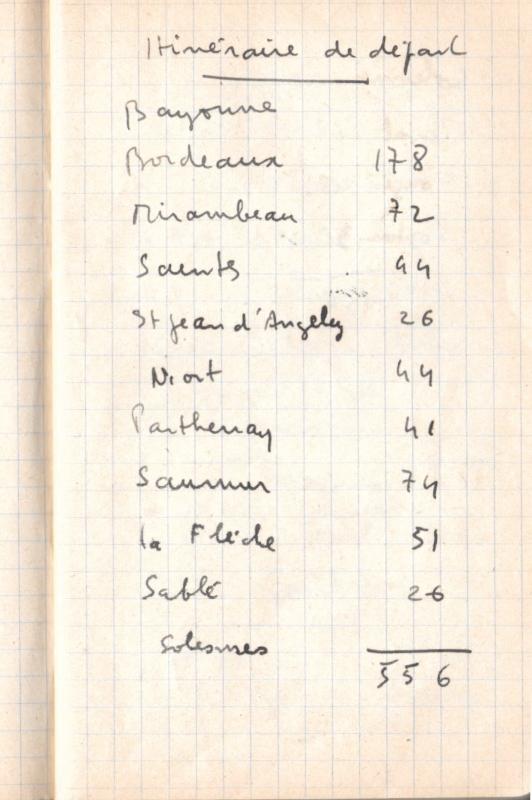 Itinéraire de départ
Bayonne
Bordeaux 178
Mirambeau 72
Saintes 44
St Jean d'Angely 26
Niort 44
Parthenay 41
Saumur 74
la Flèche 51
Sablé 26
Solesmes
556